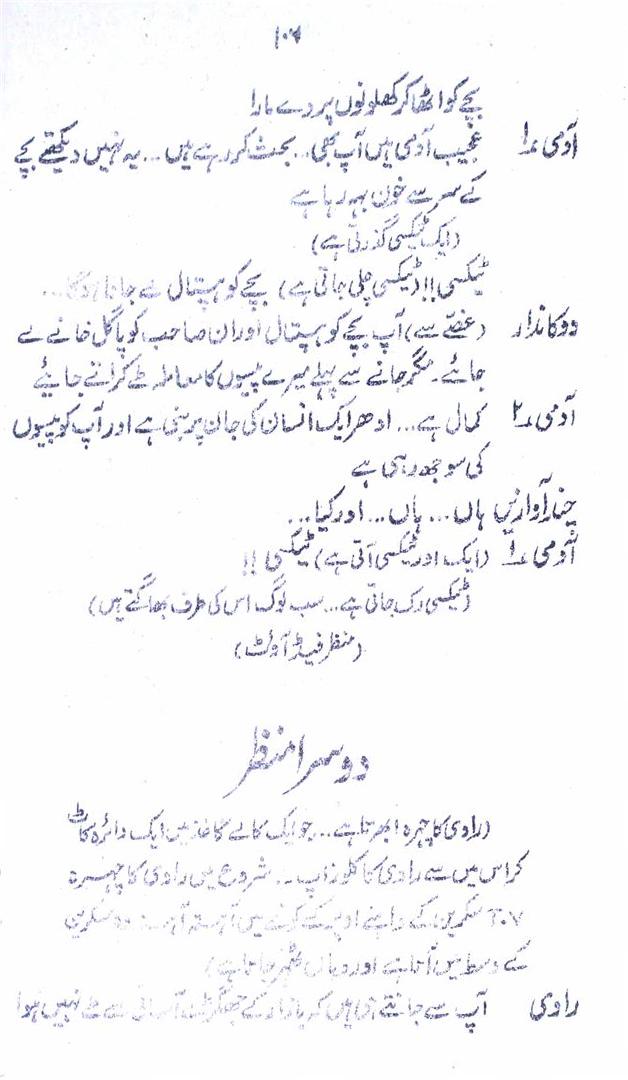 ۱۰۶
بچے کو اٹھا کر کھلونوں پر دے مارا
آدمی ۱ عجیب آدمی ہیں آپ بھی... بحث کر رہے ہیں... یہ نہیں دیکھتے بچے
کے سر سے خون بہہ رہا ہے
(ایک ٹیکسی گذرتی ہے)
ٹیکسی!! (ٹیکسی چلی جاتی ہے) بچے کو ہسپتال لے جانا ہوگا...
دوکاندار (غصّے سے) آپ بچے کو ہسپتال اور ان صاحب کو پاگل خانے لے
جائے۔ مگر جانے سے پہلے میرے پیسوں کا معاملہ طے کراتے جائیے
آدمی ۲ کمال ہے... ادھر ایک انسان کی جان پر بنی ہے اور آپ کو پیسوں
کی سوجھ رہی ہے
چند آوازیں ہاں... ہاں... اور کیا...
آدمی ۱ (ایک اور ٹیکسی آتی ہے) ٹیکسی!!
(ٹیکسی رک جاتی ہے... سب لوگ اس کی طرف بھاگتے ہیں)
(منظر فیڈ آوٹ)
دوسرا منظر
(راوی کا چہرہ ابھرتا ہے... جو ایک کالے کاغذ میں ایک دائرہ کاٹ
کر اس میں سے راوی کا کلوز اپ... شروع میں راوی کا چہرہ
T.V سکرین کے داہنے اوپر کے کونے میں آہستہ آہستہ سکرین
کے وسط میں آتا ہے اور وہاں ٹھہر جاتا ہے)
راوی آپ سے جانتے ہی ہیں کہ بازار کے جھگڑے آسانی سے طے نہیں ہوا